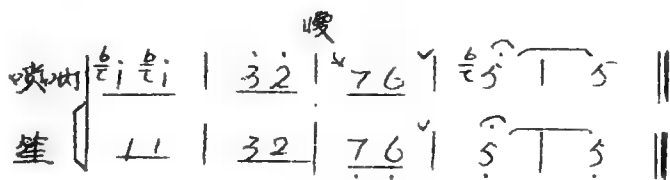 慢
唢呐 6/7 i 6/7 i | 3̇ 2̇ | 7 6 | 6/7 5 | 5 ‖
笙 1 1 | 3 2 | 7̣ 6̣ | 5̣ | 5̣ ‖